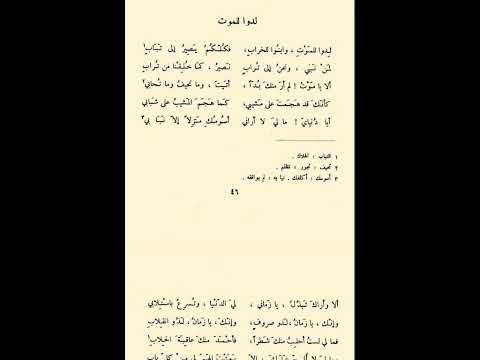 لدوا للموت
لِدوا للمَوْتِ ، وابنُوا للخرابِ، فكُلّكُمُ يَصِيرُ إلى تَبَابِ١
لمنْ نَبني ، ونحنُ إلى تُرابٍ نَصيرُ ، كمَا خُلِقْنا من تُرابِ
ألا يا مَوْتُ ! لم أرَ منكَ بُدّاً ، أتَيْتَ ، وما تَحيفُ وما تُحابي٢
كأنّكَ قد هجَمتَ على مَشيبي، كما هَجَمَ المَشيبُ على شَبابي
أيا دُنيايَ ! ما ليَ لا أراني أسُومُكِ مَنزِلاً إلاّ نَبَا بي٣
١ التباب : الهلاك .
٢ تحيف : تجور ، تظلم .
٣ أسومك : أكلفك . نبا به : لم يوافقه .
٤٦
ألا وأراكَ تَبذُلُ ، يا زَماني ، ليَ الدّنْيا ، وتُسرِعُ باستِلابي
وإنّكَ ، يا زَمانُ ، لذو صروفٍ، وإنّكَ ، يا زَمانُ ، لذو انقِلابِ
فما لي لستُ أحلِبُ منكَ شَطراً، فأحمَدَ منكَ عاقِبَةَ الحِلابِ
من كلّ بابِ